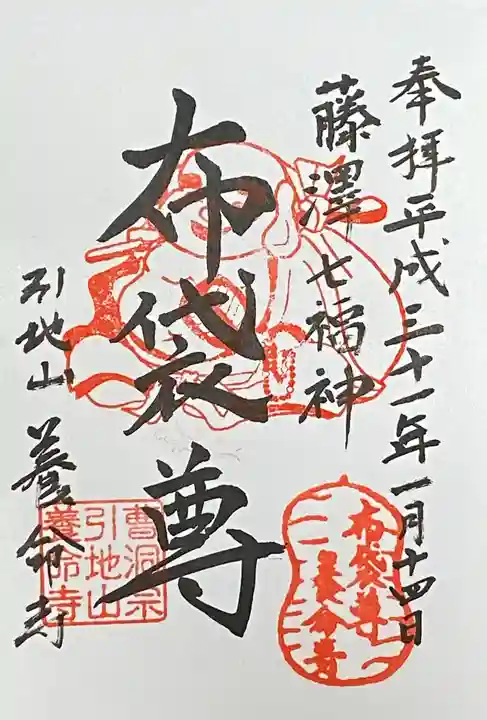 奉拝平成三十一年一月十四日
藤澤七福神
布袋尊
引地山養命寺
布袋尊
養命寺
曹洞宗
引地山
養命寺